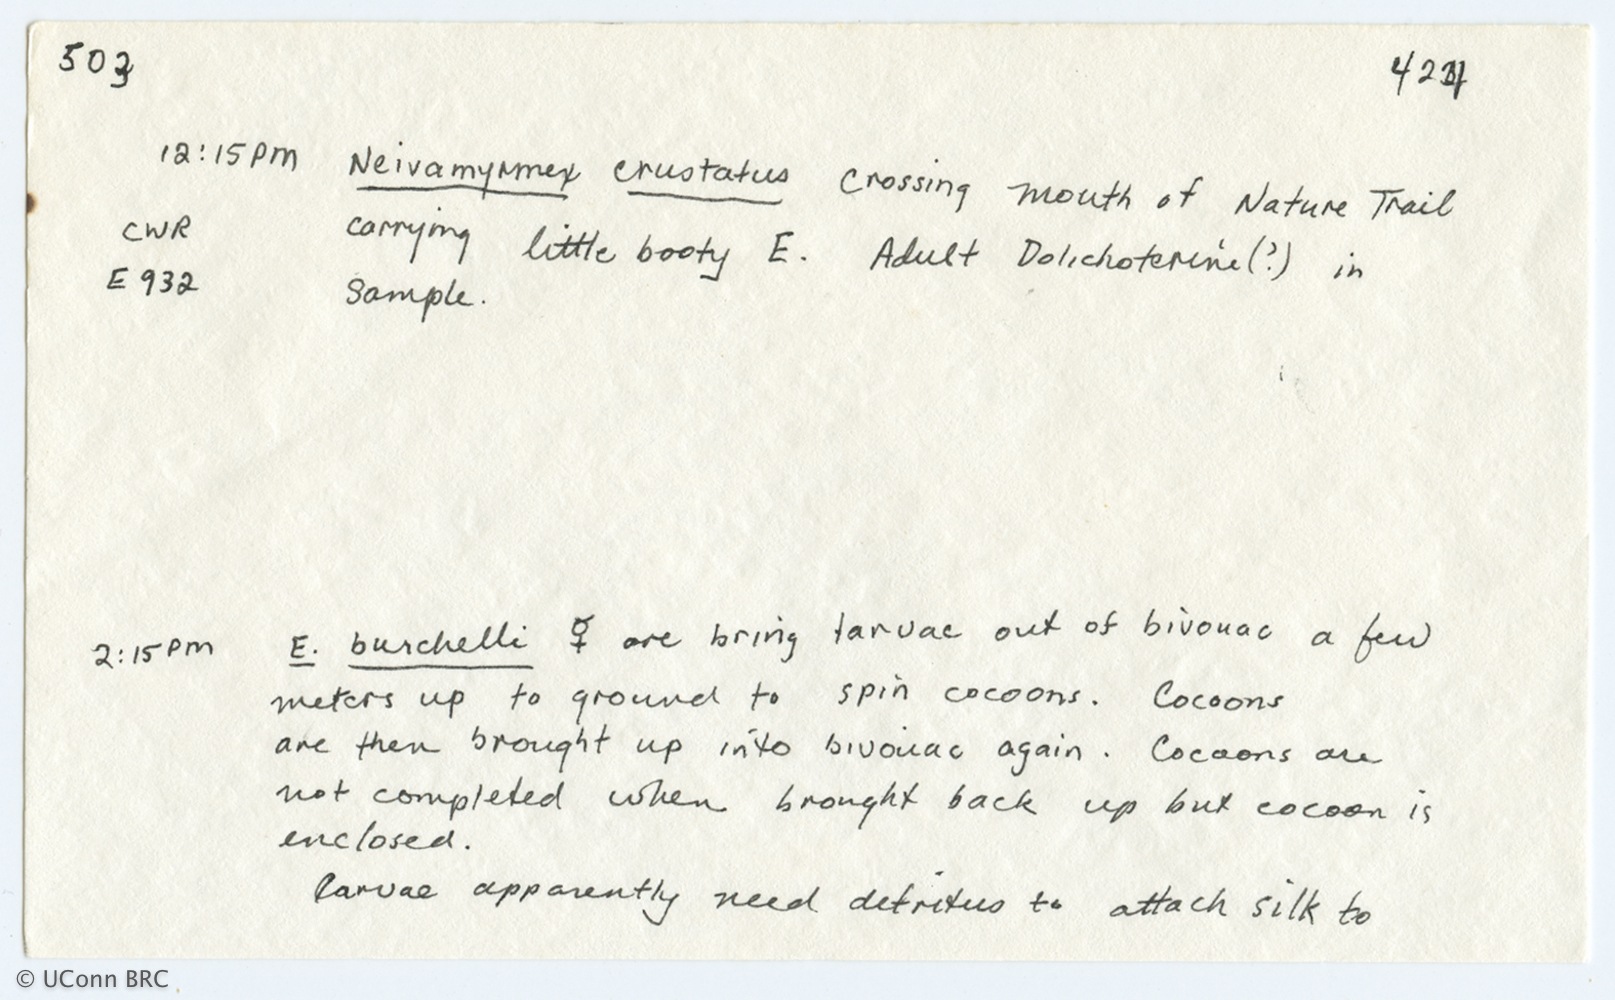 503 424
12:15pm Neivamyrmex crustatus crossing mouth of Nature Trail
CWR carrying little booty E. Adult Dolichoterine(?) in
E 932 sample.
2:15pm E. burchelli ☿ are bring larvae out of bivouac a few
meters up to ground to spin cocoons. Cocoons
are then brought up into bivouac again. Cocoons are
not completed when brought back up but cocoon is
enclosed.
Larvae apparently need detritus to attach silk to
© UConn BRC